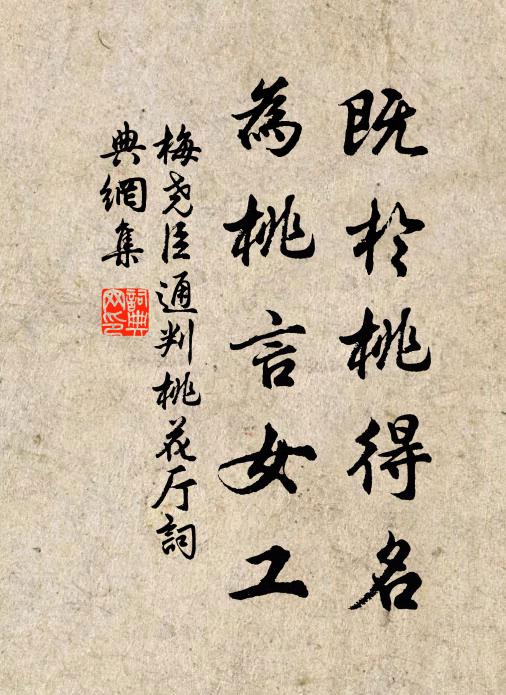 既於桃得名
為桃言女工
梅堯臣通判桃花厅詞
典網集
詞典
网印